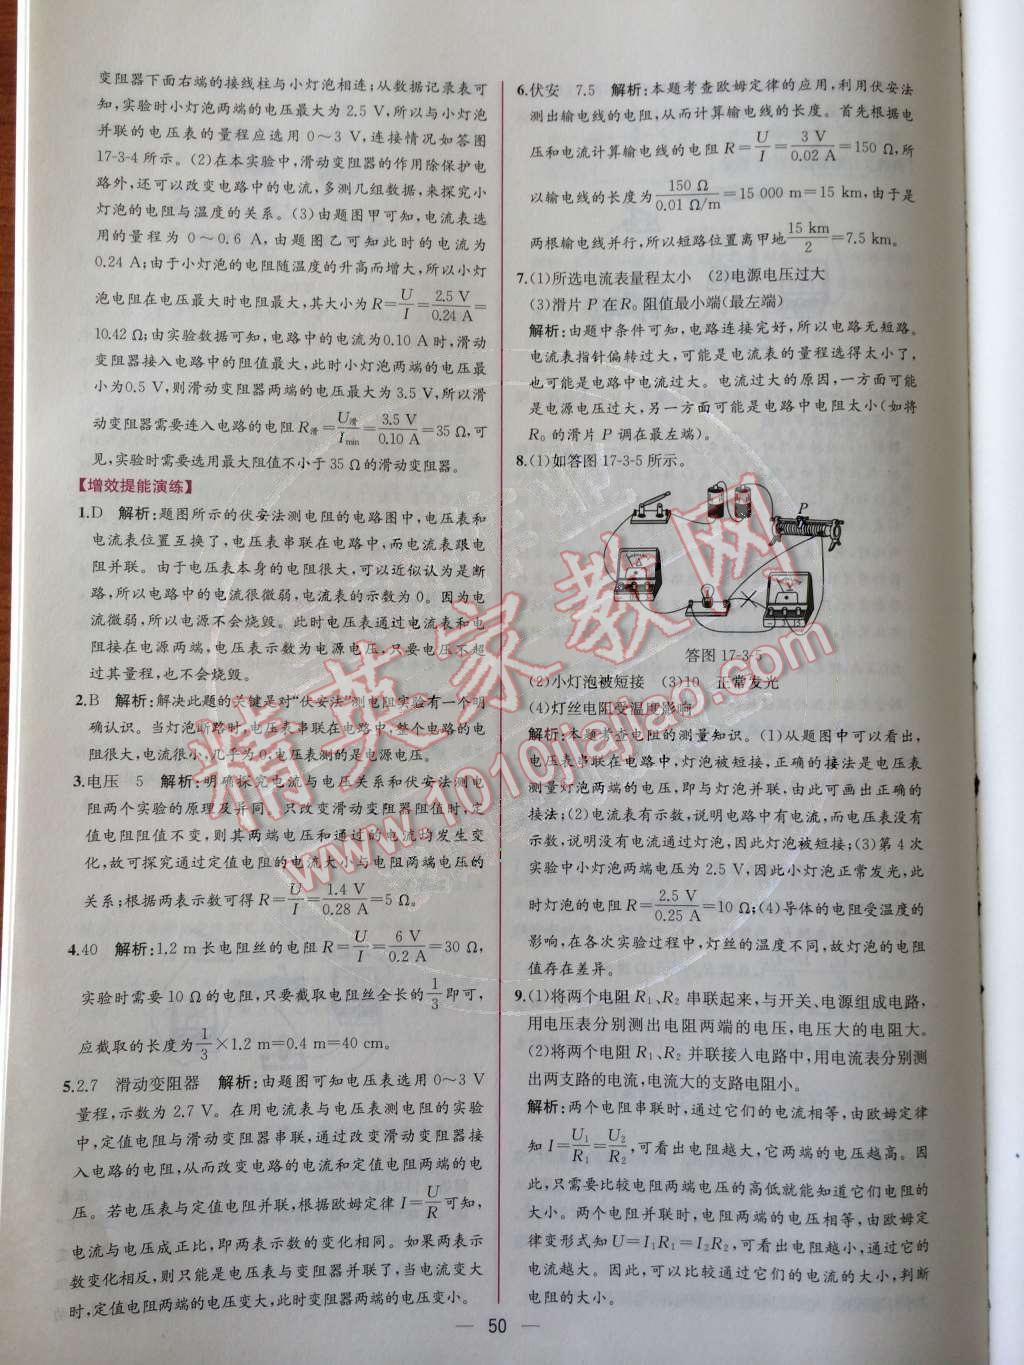 变阻器下面右端的接线柱与小灯泡相连;从数据记录表可
知,实验时小灯泡两端的电压最大为 2.5 V,所以与小灯泡
并联的电压表的量程应选用 0～3 V,连接情况如答图
17-3-4 所示。(2)在本实验中,滑动变阻器的作用除保护电
路外,还可以改变电路中的电流,多测几组数据,来探究小
灯泡的电阻与温度的关系。(3)由题图甲可知,电流表选
用的量程为 0～0.6 A,由题图乙可知此时的电流为
0.24 A;由于小灯泡的电阻随温度的升高而增大,所以小灯
泡电阻在电压最大时电阻最大,其大小为 R=U/I=2.5 V/0.24 A=
10.42 Ω;由实验数据可知,电路中的电流为0.10 A时,滑动
变阻器接入电路中的阻值最大,此时小灯泡两端的电压最
小为0.5 V,则滑动变阻器两端的电压最大为3.5 V,所以滑
动变阻器需要连入电路的电阻R滑=U滑/Imin=3.5 V/0.10 A=35 Ω,可
见,实验时需要选用最大阻值不小于 35 Ω的滑动变阻器。
【增效提能演练】
1.D 解析:题图所示的伏安法测电阻的电路图中,电压表和
电流表位置互换了,电压表串联在电路中,而电流表跟电
阻并联。由于电压表本身的电阻很大,可以近似认为是断
路,所以电路中的电流很微弱,电流表的示数为 0。因为电
流微弱,所以电源不会烧毁。此时电压表通过电流表和电
阻接在电源两端,电压表示数为电源电压,只要电压不超
过其量程,也不会烧毁。
2.B 解析:解决此题的关键是对“伏安法”测电阻实验有一个明
确认识。当灯泡断路时,电压表串联在电路中,整个电路的电
阻很大,电流很小,几乎为0,电压表测的是电源电压。
3.电压 5 解析:明确探究电流与电压关系和伏安法测电
阻两个实验的原理及异同。只改变滑动变阻器阻值时,定
值电阻阻值不变,则其两端电压和通过的电流均发生变
化,故可探究通过定值电阻的电流大小与电阻两端电压的
关系;根据两表示数可得 R=U/I=1.4 V/0.28 A=5 Ω。
4.40 解析:1.2 m 长电阻丝的电阻 R=U/I=6 V/0.2 A=30 Ω,
实验时需要 10 Ω的电阻,只要截取电阻丝全长的1/3即可,
应截取的长度为1/3×1.2 m=0.4 m=40 cm。
5.2.7 滑动变阻器 解析:由题图可知电压表选用 0～3 V
量程,示数为 2.7 V。在用电流表与电压表测电阻的实验
中,定值电阻与滑动变阻器串联,通过改变滑动变阻器接
入电路的电阻,从而改变电路的电流和定值电阻两端的电
压。若电压表与定值电阻并联,根据欧姆定律 I=U/R可知,
电流与电压成正比,即两表示数的变化相同。如果两表示
数变化相反,则只能是电压表与变阻器并联了,当电流变大
时,定值电阻两端的电压变大,此时变阻器两端的电压变小。
6.伏安 7.5 解析:本题考查欧姆定律的应用,利用伏安法
测出输电线的电阻,从而计算输电线的长度。首先根据电
压和电流计算输电线的电阻 R=U/I=3 V/0.02 A=150 Ω,所
以输电线的长度为150 Ω/0.01 Ω/m=15 000 m=15 km,由于是
两根输电线并行,所以短路位置离甲地15 km/2=7.5 km。
7.(1)所选电流表量程太小 (2)电源电压过大
(3)滑片 P 在R₀ 阻值最小端(最左端)
解析:由题中条件可知,电路连接完好,所以电路无短路。
电流表指针偏转过大,可能是电流表的量程选得太小了,
也可能是电路中电流过大。电流过大的原因,一方面可能
是电源电压过大,另一方面可能是电路中电阻太小(如将
R₀的滑片 P 调在最左端)。
8.(1)如答图 17-3-5 所示。
P
答图 17-3-5
(2)小灯泡被短接 (3)10 正常发光
(4)灯丝电阻受温度影响
解析:本题考查电阻的测量知识。(1)从题图中可以看出,
电压表串联在电路中,灯泡被短接,正确的接法是电压表
测量灯泡两端的电压,即与灯泡并联,由此可画出正确的
接法;(2)电流表有示数,说明电路中有电流,而电压表没有
示数,说明没有电流通过灯泡,因此灯泡被短接;(3)第 4 次
实验中小灯泡两端电压为 2.5 V,因此小灯泡正常发光,此
时灯泡的电阻 R=2.5 V/0.25 A=10 Ω;(4)导体的电阻受温度的
影响,在各次实验过程中,灯丝的温度不同,故灯泡的电阻
值存在差异。
9.(1)将两个电阻 R₁、R₂ 串联起来,与开关、电源组成电路,
用电压表分别测出电阻两端的电压,电压大的电阻大。
(2)将两个电阻 R₁、R₂ 并联接入电路中,用电流表分别测
出两支路的电流,电流大的支路电阻小。
解析:两个电阻串联时,通过它们的电流相等,由欧姆定律
知 I=U₁/R₁=U₂/R₂,可看出电阻越大,它两端的电压越高。因
此,只需要比较电阻两端电压的高低就能知道它们电阻的
大小。两个电阻并联时,电阻两端的电压相等,由欧姆定
律变形式知U=I₁R₁=I₂R₂,可看出电阻越小,通过它的
电流越大。因此,可以比较通过它们的电流的大小,判断
电阻的大小。
— 50 —
精英家教网
www.1010jiajiao.com